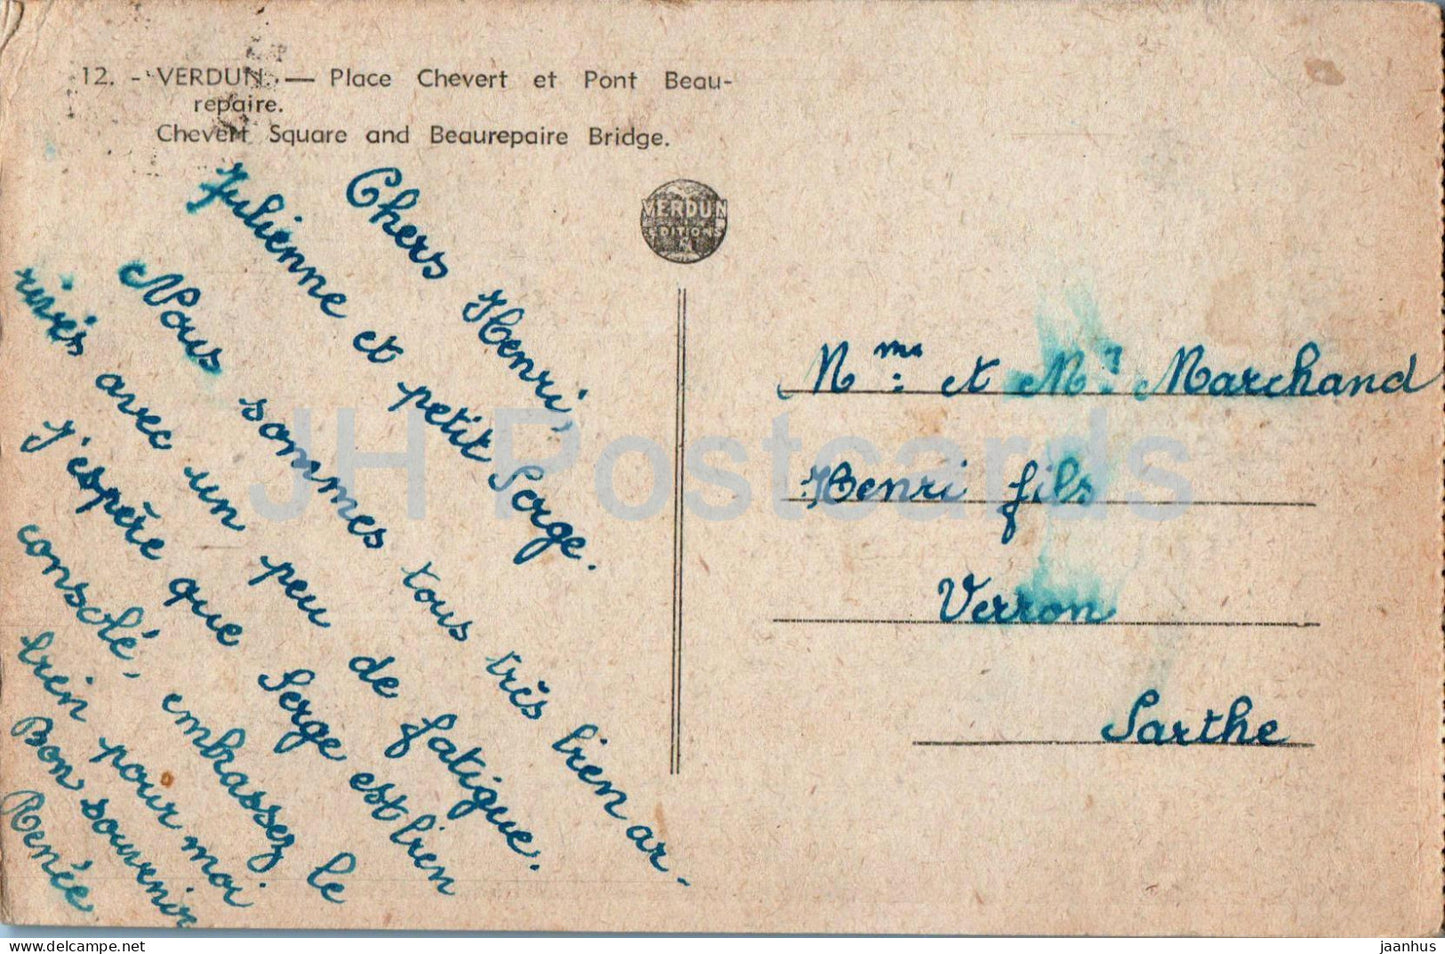 12. - VERDUN. — Place Chevert et Pont Beau-
repaire.
Chevert Square and Beaurepaire Bridge.
VERDUN
EDITIONS
Chers Henri,
Julienne et petit Serge.
Nous sommes tous très bien ar-
rivés avec un peu de fatigue.
J'espère que Serge est bien
consolé, embrassez le
bien pour moi
Bon souvenir
Renée
Mme: et Mr Marchand
Henri fils
Verron
Sarthe
JH Postcards
www.delcampe.net
jaanhus